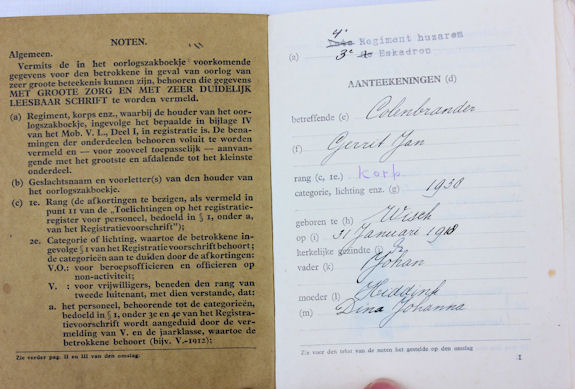 NOTEN.
Algemeen.
Vermits de in het oorlogszakboekje voorkomende
gegevens voor den betrokkene in geval van oorlog van
zeer groote beteekenis kunnen zijn, behooren die gegevens
MET GROOTE ZORG EN MET ZEER DUIDELIJK
LEESBAAR SCHRIFT te worden vermeld.
(a) Regiment, korps enz., waarbij de houder van het oor-
logszakboekje, ingevolge het bepaalde in bijlage IV
van het Mob. V. L., Deel I, in registratie is. De bena-
mingen der onderdeelen behooren voluit te worden
vermeld en — voor zooveel toepasselijk — aanvan-
gende met het grootste en afdalende tot het kleinste
onderdeel.
(b) Geslachtsnaam en voorletter(s) van den houder van
het oorlogszakboekje.
(c) 1e. Rang (de afkortingen te bezigen, als vermeld in
punt 11 van de „Toelichtingen op het registratie-
register voor personeel, bedoeld in § 1, onder a,
van het Registratievoorschrift");
2e. Categorie of lichting, waartoe de betrokkene in-
gevolge § 1 van het Registratievoorschrift behoort;
de categorieën aan te duiden door de afkortingen:
V.O.: voor beroepsofficieren en officieren op
non-activiteit;
V. : voor vrijwilligers, beneden den rang van
tweede luitenant, met dien verstande, dat:
a. het personeel, behoorende tot de categorieën,
bedoeld in § 1, onder 3e en 4e van het Registra-
tievoorschrift wordt aangeduid door de ver-
melding van V. en de jaarklasse, waartoe de
betrokkene behoort (bijv. V.-1912);
Zie verder pag. II en III van den omslag.
4e
Regiment huzaren
(a) 3e Eskadron
AANTEEKENINGEN (d)
betreffende (e) Colenbrander
(f) Gerrit Jan
rang (c, 1e.) korp
categorie, lichting enz. (g) 1938
geboren te (h) Wisch
op (i) 31 Januarie 1918
kerkelijke gezindte (j)
vader (k) Johan
moeder (l) Hiddink
(m) Dina Johanna
Zie voor den tekst van de noten het gestelde op den omslag
1